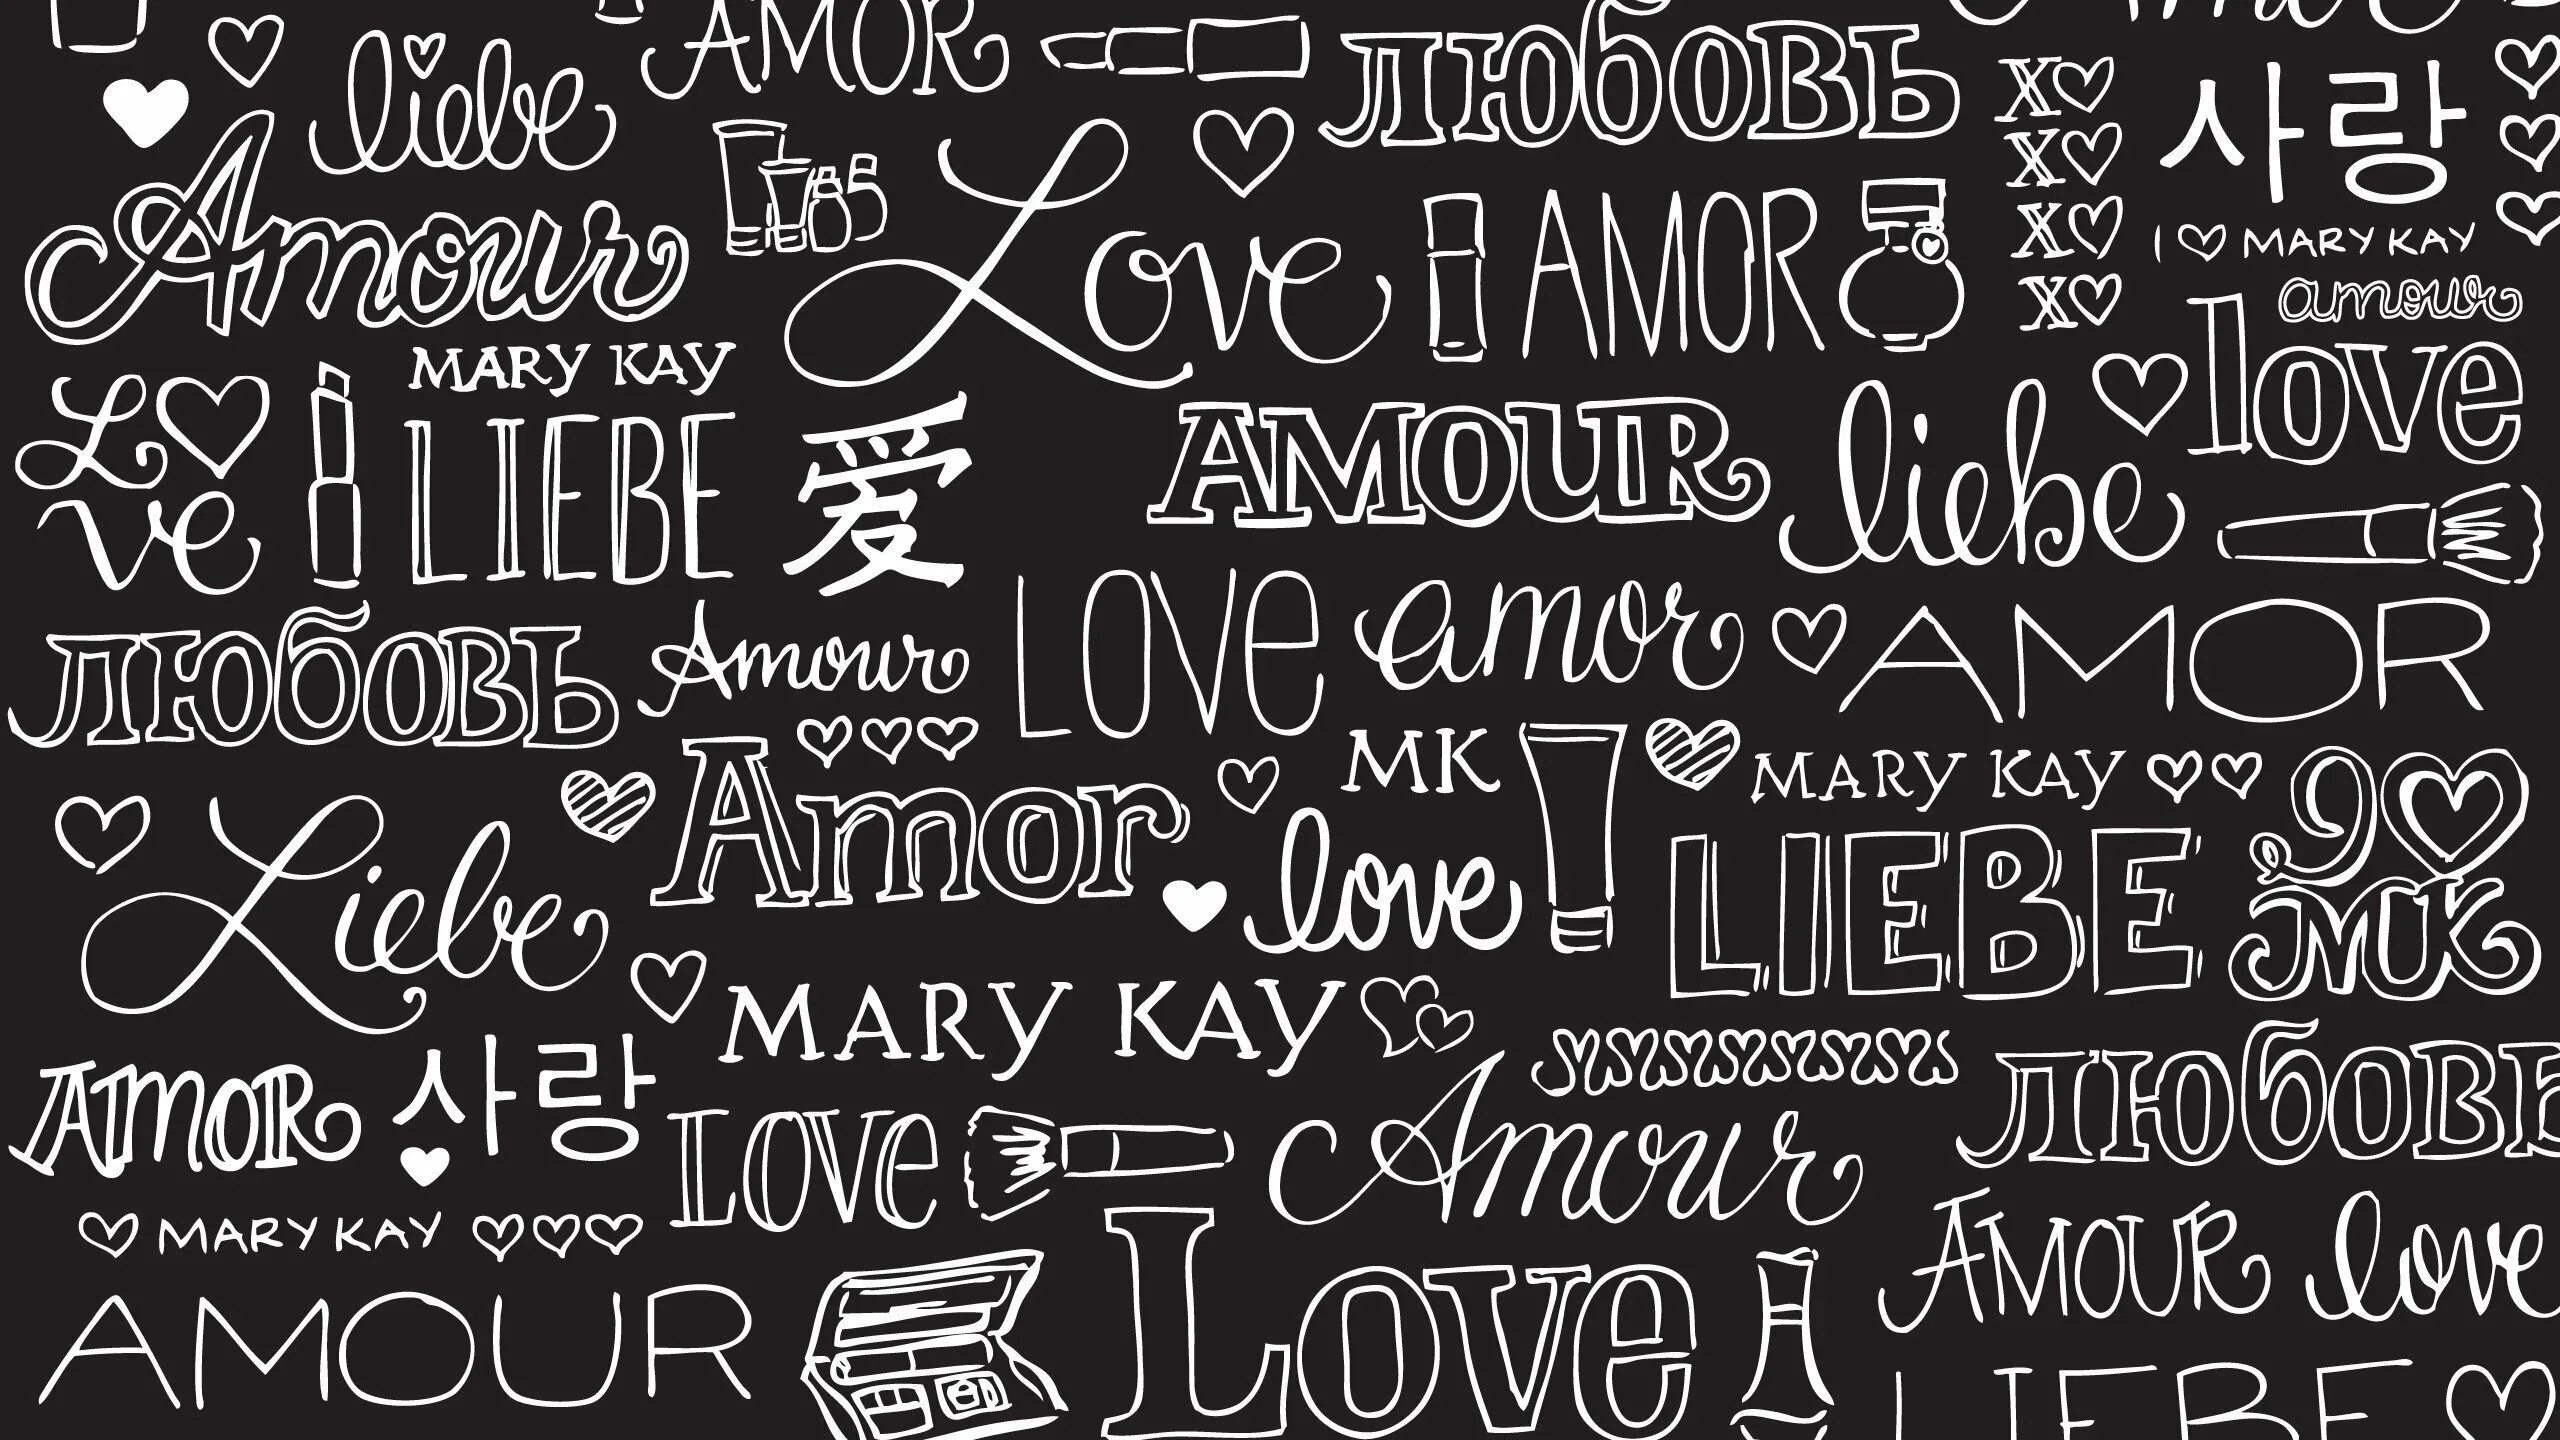 AMOR
любовь
liebe
X
X
X
X
사랑
Amour
Love
AMOR
I ♡ MARY KAY
amour
love
MARY KAY
L♡
ve
LIEBE
爱
AMOUR
liebe
любовь
Amour
LOVe
amor
AMOR
Amor
MK
MARY KAY
love
LIEBE
MK
Liebe
MARY KAY
AMOR
사랑
LOVe
Amour
любовь
MARY KAY
AMOUR
love
AMOUR
Love
LIEBE